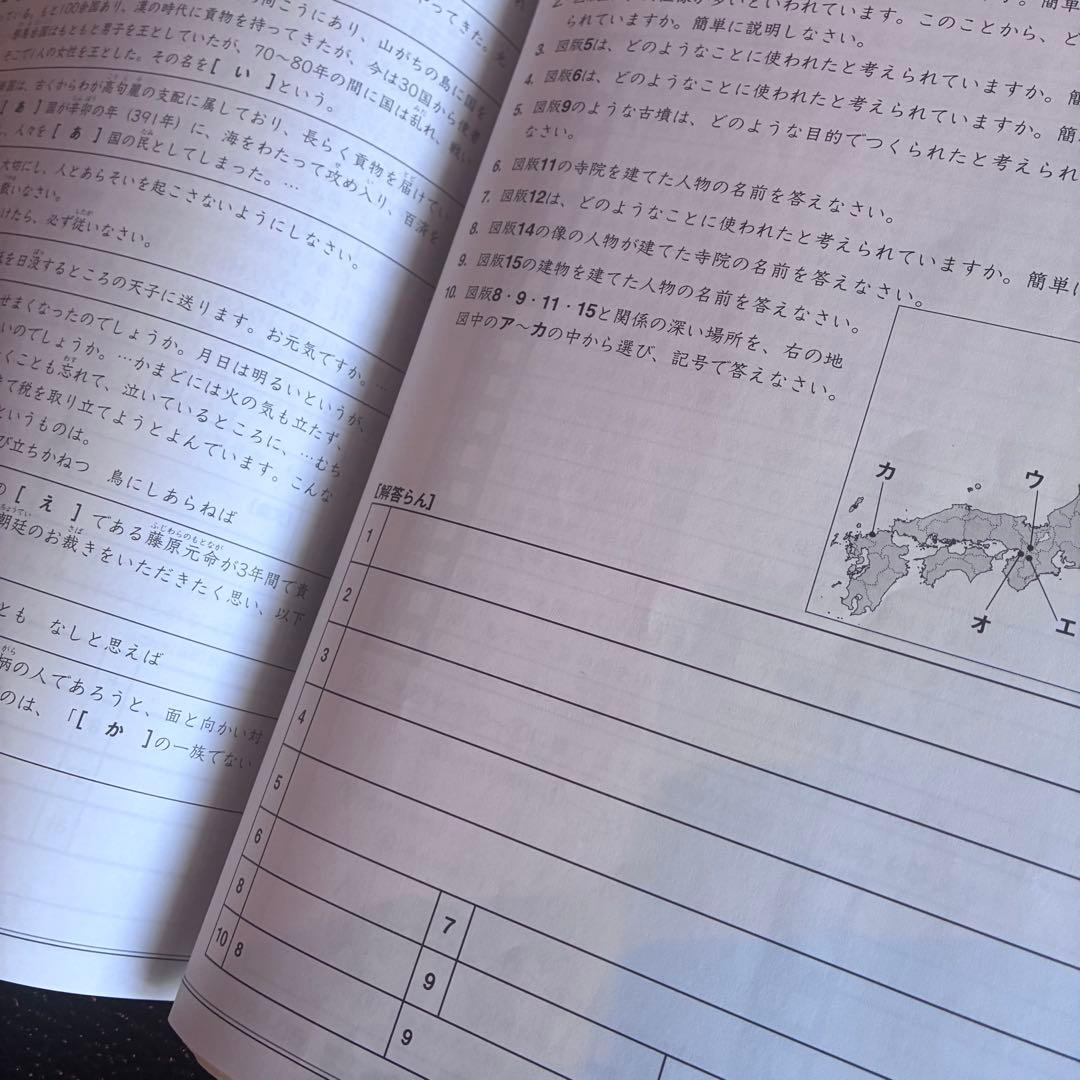 向こうにあり、山がちの島に国を
やってきた。
いる。もと100余国あり、漢の時代に貢物を持ってきたが、今は30国から使者
馬台国はもともと男子を王としていたが、70〜80年の間に国は乱れ、戦い
そこで1人の女性を王とした。その名を[ い ]という。
羅国は、古くからわが高句麗の支配に属しており、長らく貢物を届けてい
[ あ ]国が辛卯の年（391年）に、海をわたって攻め入り、百済を
し、人々を[ あ ]国の民としてしまった。…
大切にし、人とあらそいを起こさないようにしなさい。
敬いなさい。
けたら、必ず従いなさい。
を日没するところの天子に送ります。お元気ですか。…
せまくなったのでしょうか。月日は明るいというが、
いのでしょうか。…かまどには火の気も立たず、
くことも忘れて、泣いているところに、…むち
て税を取り立てようとよんでいます。こんな
というものは。
び立ちかねつ　鳥にしあらねば
の[ え ]である藤原元命が3年間で責
朝廷のお裁きをいただきたく思い、以下
とも　なしと思えば
柄の人であろうと、面と向かい対
のは、「[ か ]の一族でない
いわれています。このことから、ど
られていますか。簡単に説明しなさい。
3. 図版5は、どのようなことに使われたと考えられていますか。簡
4. 図版6は、どのようなことに使われたと考えられていますか。簡単
5. 図版9のような古墳は、どのような目的でつくられたと考えられ
なさい。
6. 図版11の寺院を建てた人物の名前を答えなさい。
7. 図版12は、どのようなことに使われたと考えられていますか。簡単に
8. 図版14の像の人物が建てた寺院の名前を答えなさい。
9. 図版15の建物を建てた人物の名前を答えなさい。
10. 図版8・9・11・15と関係の深い場所を、右の地
図中のア〜カの中から選び、記号で答えなさい。
カ
ウ
オ
エ
[解答らん]
1
2
3
4
5
6
7
8
9
10
8
9